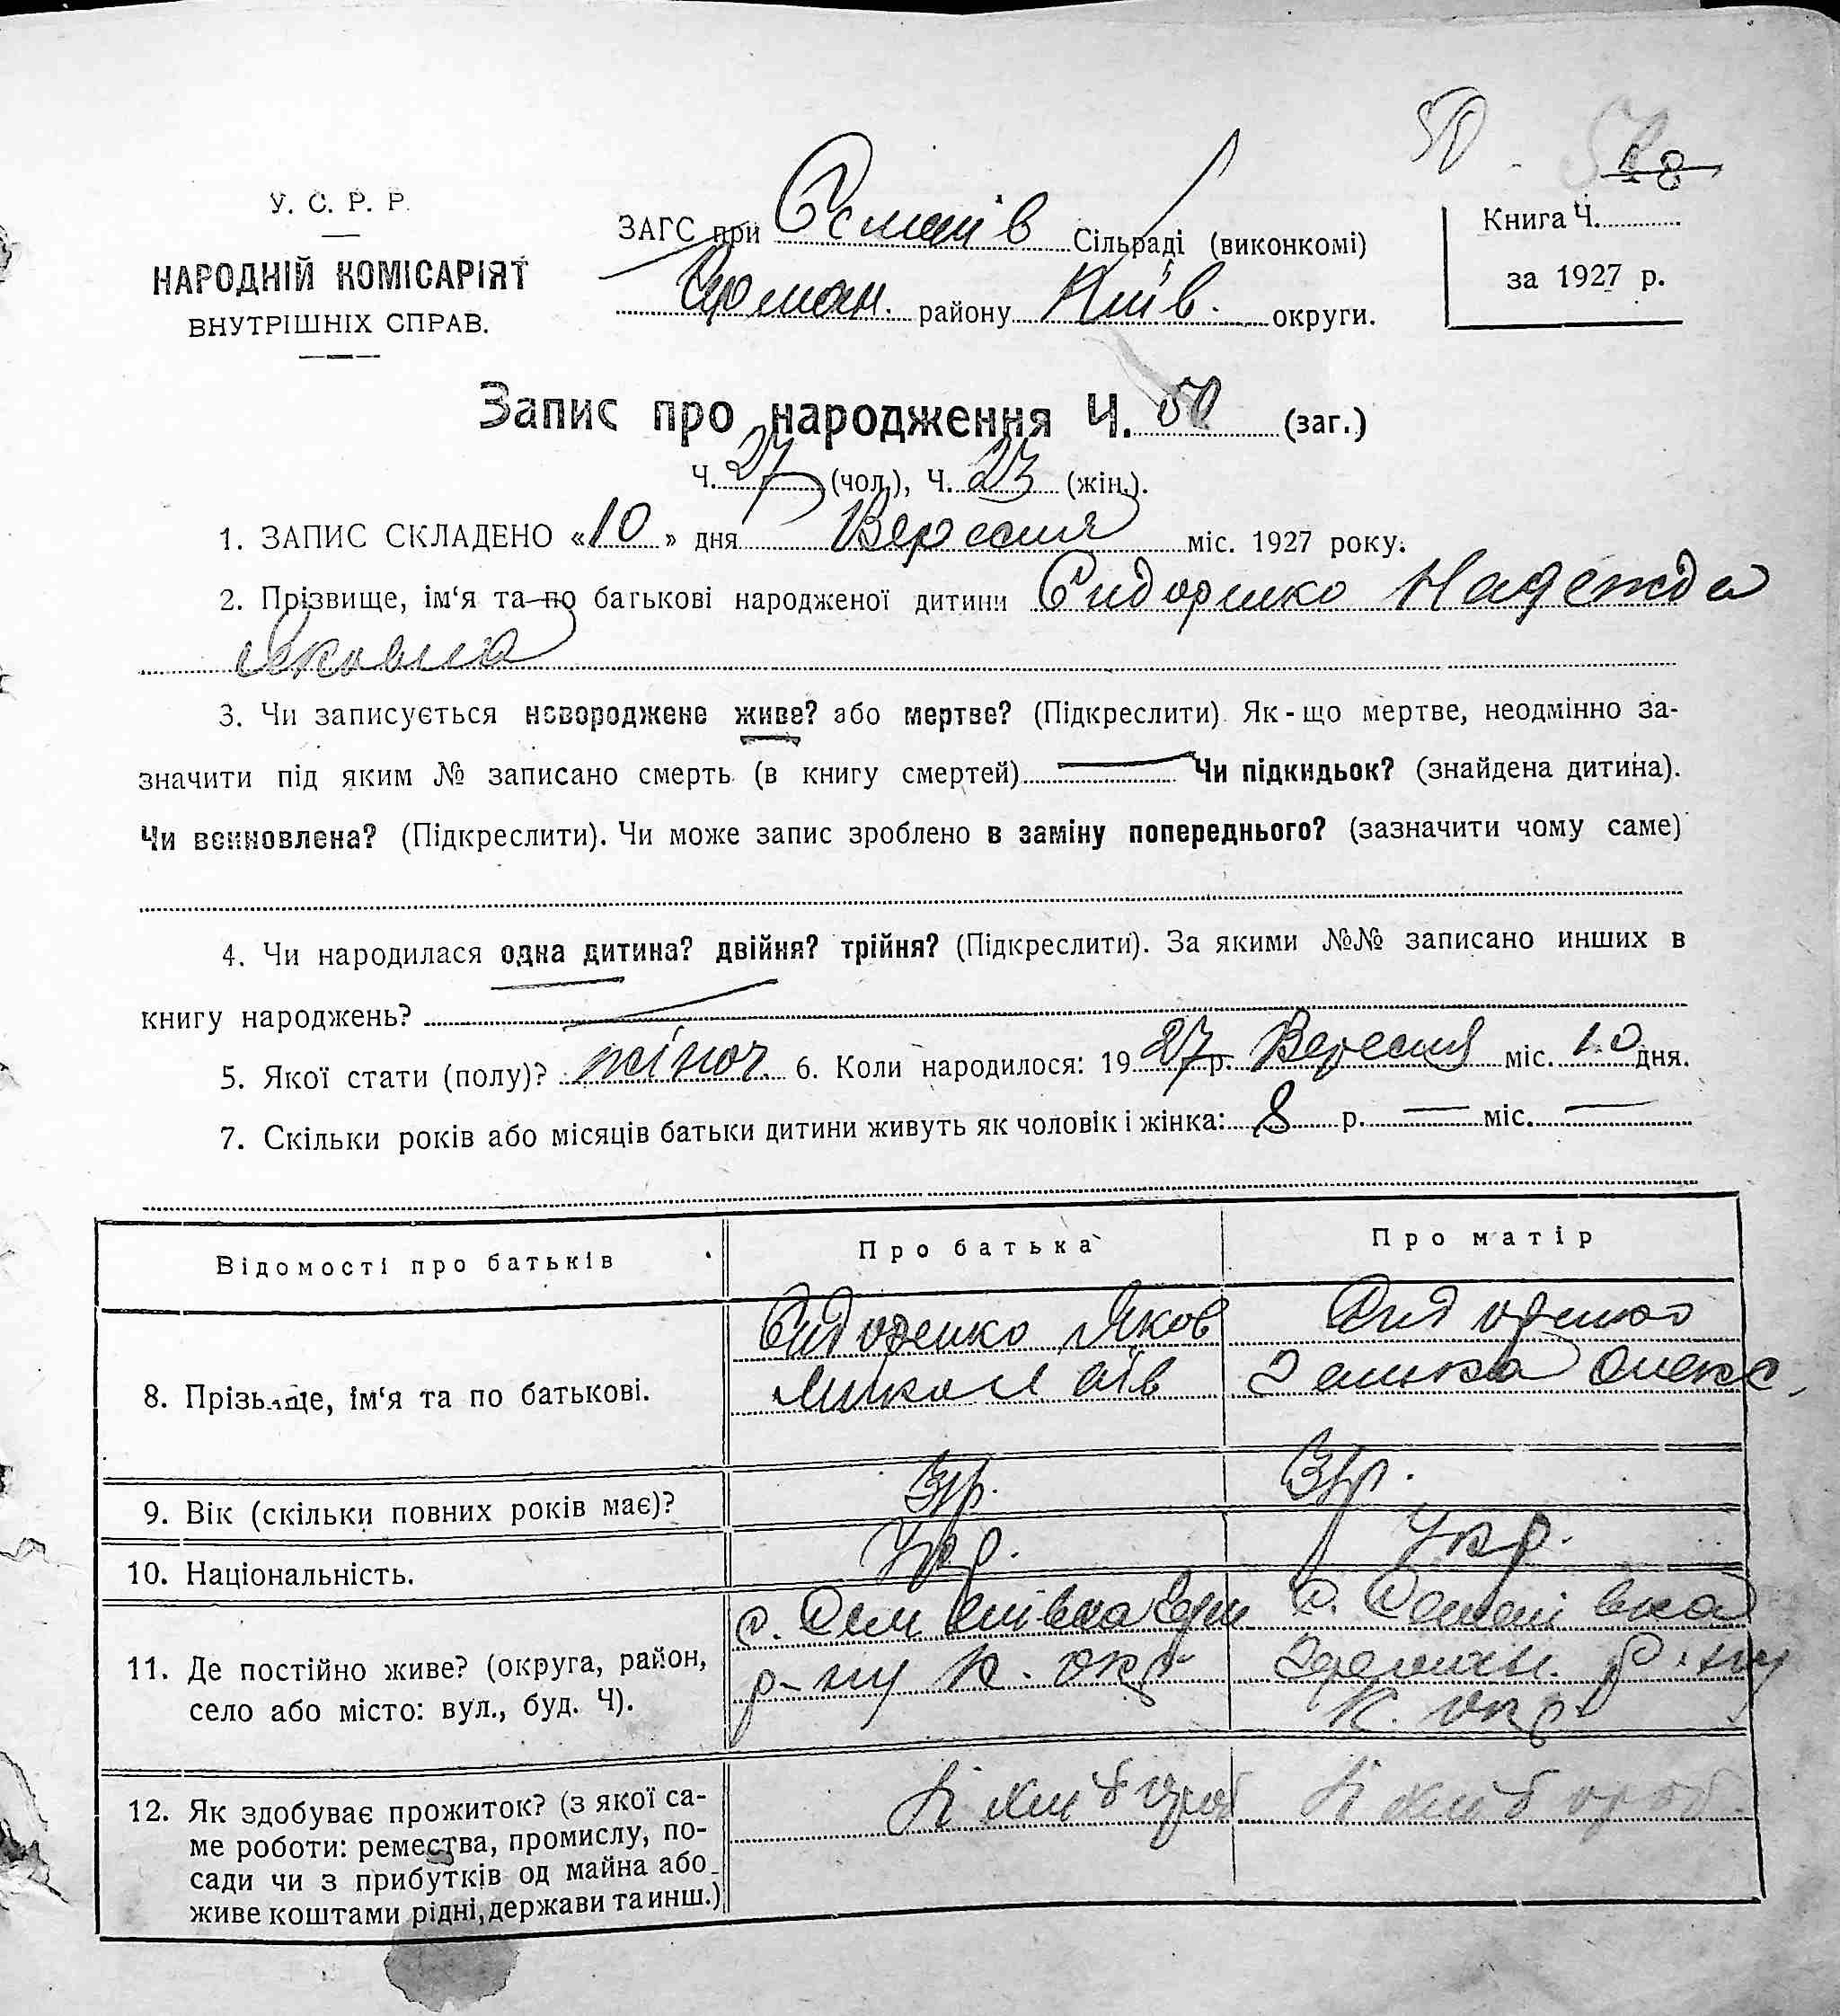 50 48
У. С. Р. Р.
НАРОДНІЙ КОМІСАРІЯТ
ВНУТРІШНІХ СПРАВ.
ЗАГС при Семенів Сільраді (виконкомі)
району Київ. округи.
Книга Ч.
за 1927 р.
Запис про народження Ч. 50 (заг.)
Ч. 27 (чол.), Ч. 23 (жін.).
1. ЗАПИС СКЛАДЕНО «10» дня Вересня міс. 1927 року.
2. Прізвище, ім‘я та по батькові народженої дитини Сидоренко Надежда
Яковна
3. Чи записується новороджене живе? або мертве? (Підкреслити). Як-що мертве, неодмінно за-
значити під яким № записано смерть (в книгу смертей) Чи підкидьок? (знайдена дитина).
Чи всиновлена? (Підкреслити). Чи може запис зроблено в заміну попереднього? (зазначити чому саме)
4. Чи народилася одна дитина? двійня? трійня? (Підкреслити). За якими №№ записано инших в
книгу народжень?
5. Якої стати (полу)? жіноч. 6. Коли народилося: 1927 р. Вересня міс. 10 дня.
7. Скільки років або місяців батьки дитини живуть як чоловік і жінка: 8 р. — міс. —
Відомості про батьків Про батька Про матір
8. Прізвище, ім‘я та по батькові. Сидоренко Яков Сидоренко
Миколаїв Олекс.
9. Вік (скільки повних років має)?
10. Національність. Укр. Укр.
11. Де постійно живе? (округа, район,
село або місто: вул., буд. Ч).
с. Семенівка с. Семенівка
р-ну К. окр р-ну
К. окр
12. Як здобуває прожиток? (з якої са-
ме роботи: ремества, промислу, по-
сади чи з прибутків од майна або
живе коштами рідні, держави та инш.)